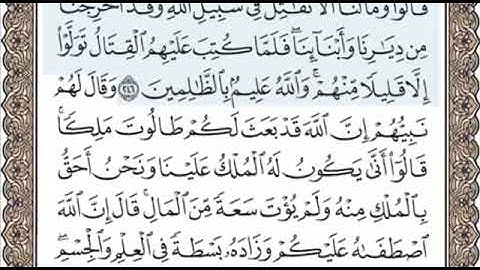 قَالُوا۟ وَمَا لَنَآ أَلَّا نُقَـٰتِلَ فِى سَبِيلِ ٱللَّهِ وَقَدْ أُخْرِجْنَا
مِن دِيَـٰرِنَا وَأَبْنَآئِنَا ۖ فَلَمَّا كُتِبَ عَلَيْهِمُ ٱلْقِتَالُ تَوَلَّوْا۟
إِلَّا قَلِيلًا مِّنْهُمْ ۗ وَٱللَّهُ عَلِيمٌۢ بِٱلظَّـٰلِمِينَ ٢٤٦ وَقَالَ لَهُمْ
نَبِيُّهُمْ إِنَّ ٱللَّهَ قَدْ بَعَثَ لَكُمْ طَالُوتَ مَلِكًا ۚ
قَالُوٓا۟ أَنَّىٰ يَكُونُ لَهُ ٱلْمُلْكُ عَلَيْنَا وَنَحْنُ أَحَقُّ
بِٱلْمُلْكِ مِنْهُ وَلَمْ يُؤْتَ سَعَةً مِّنَ ٱلْمَالِ ۚ قَالَ إِنَّ ٱللَّهَ
ٱصْطَفَىٰهُ عَلَيْكُمْ وَزَادَهُۥ بَسْطَةً فِى ٱلْعِلْمِ وَٱلْجِسْمِ ۖ